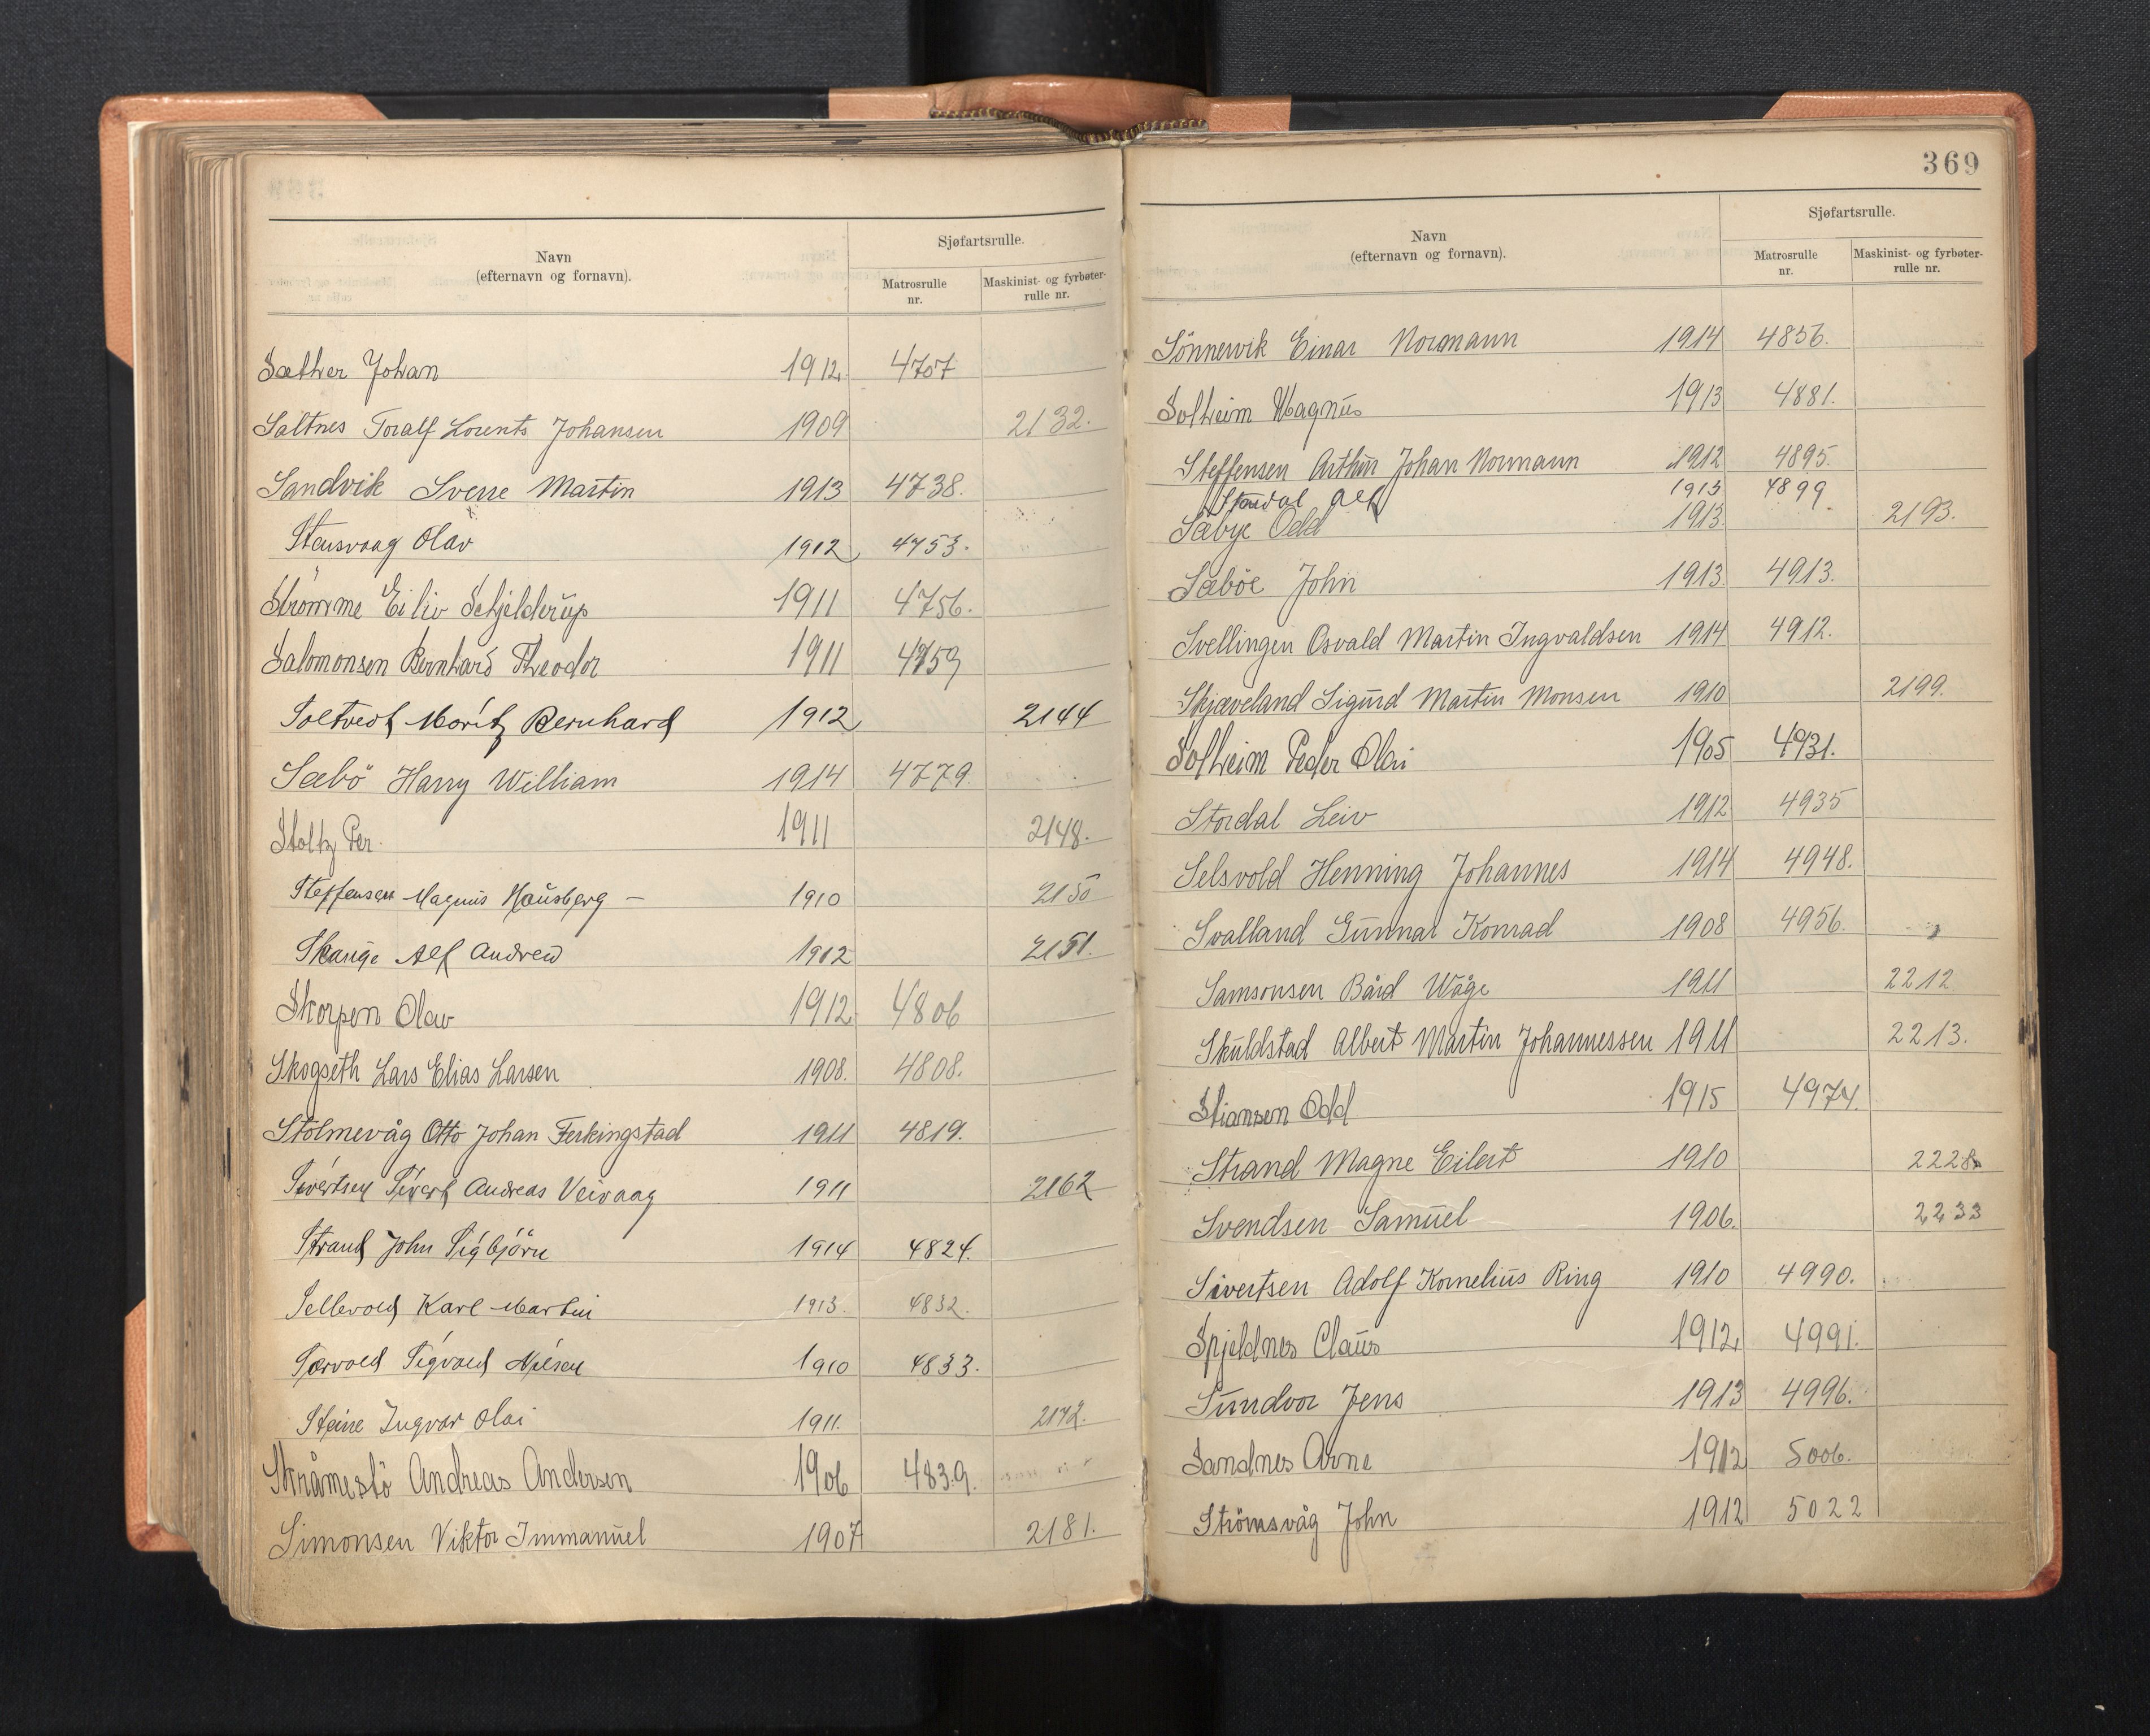 Navn
(efternavn og fornavn).
Sjøfartsrulle.
Matrosrulle
nr.
Maskinist- og fyrbøter-
rulle nr.
Sæther Johan 1912 4707
Saltnes Toralf Lorents Johansen 1909 2132.
Sandvik Sverre Martin 1913 4738.
Stensvaag Olav 1912 4753.
Strömme Eiliv Schjelderup 1911 4756.
Salomonsen Bernhard Theodor 1911 4759
Soltvedt Moritz Bernhard 1912 2144
Sæbö Harry William 1914 4779.
Stoltz Per. 1911 2148.
Steffensen Magnus Hausberg — 1910 2150
Skauge Alf Andrew 1912 2151.
Skorpen Olav 1912 4806
Skogseth Lars Elias Larsen 1908. 4808.
Stolmevåg Otto Johan Ferkingstad 1911 4819.
Sivertsen Sivert Andreas Veivaag 1911 2162
Strand John Sigbjörn 1914 4824.
Sellevold Karl Martin 1913. 4832.
Sørvold Sigvald Nilsen 1910 4833.
Steine Ingvar Olai 1911. 2172.
Skråmestö Andreas Andersen 1906 4839.
Simonsen Viktor Immanuel 1907 2181.
369
Navn
(efternavn og fornavn).
Sjøfartsrulle.
Matrosrulle
nr.
Maskinist- og fyrbøter-
rulle nr.
Sönnervik Einar Normann 1914 4856.
Solheim Magnus 1913 4881.
Steffensen Arthur Johan Normann 1912 4895.
Stardal Alf 1913 4899.
Sæbye Odd 1913. 2193.
Sæböe John 1913. 4913.
Svellingen Osvald Martin Ingvaldsen 1914 4912.
Skjæveland Sigurd Martin Monsen 1910 2199.
Solheim Peder Olai 1905 4931.
Stordal Leiv 1912 4935
Selsvold Henning Johannes 1914 4948.
Svalland Gunnar Konrad 1908 4956.
Samsonsen Bård Wåge 1911 2212
Skuldstad Albert Martin Johannessen 1911 2213.
Stiansen Odd 1915 4974.
Strand Magne Eilert 1910 2228.
Svendsen Samuel 1906. 2233
Sivertsen Adolf Kornelius Ring 1910 4990.
Spjeldnes Claus 1912. 4991.
Sundvor Jens 1913 4996.
Sandnes Arne 1912 5006.
Strömsvåg John 1912 5022